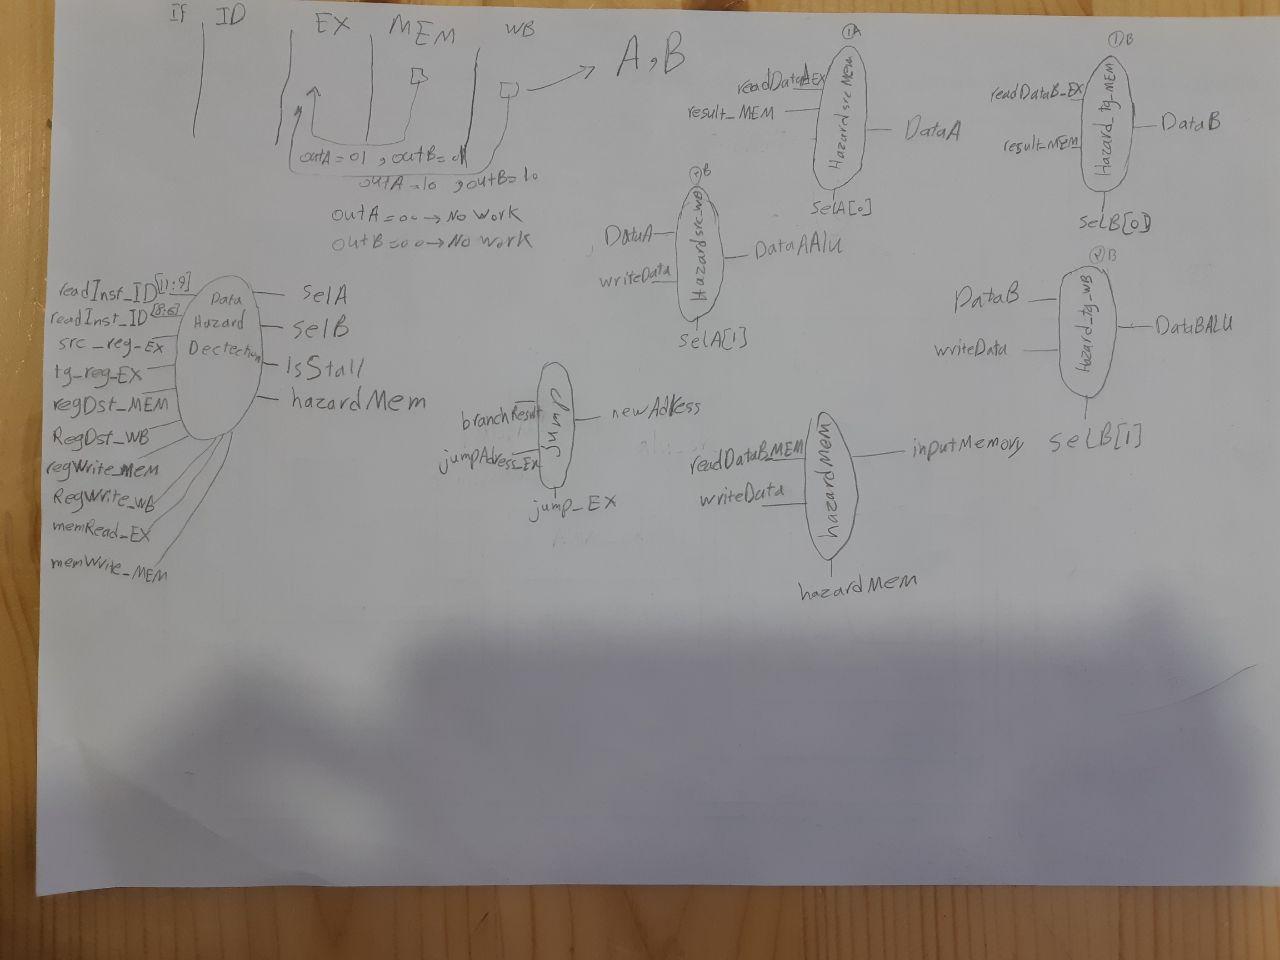 If ID EX MEM WB
A,B
outA=01 , outB=01
outA=10 , outB=10
outA=00→No work
outB=00→No work
①A
readDataA_EX
result_MEM
Hazard src Mem
DataA
selA[0]
①B
readDataB_EX
result_MEM
Hazard_tg_MEM
DataB
selB[0]
DataA
writeData
Hazard src_WB
DataAAlu
selA[1]
②B
DataB
writeData
Hazard_tg_WB
DataBALU
seLB[1]
readInst_ID[11:9]
readInst_ID[8:6]
src_reg-EX
tg_reg_EX
regDst_MEM
RegDst_WB
regWrite_MEM
RegWrite_WB
memRead_EX
memWrite_MEM
Data
Hazard
Dectection
selA
selB
IsStall
hazardMem
branchResult
jumpAdress_Ex
jump
newAdress
jump_EX
readDataB_MEM
writeData
hazardMem
inputMemory
hazardMem